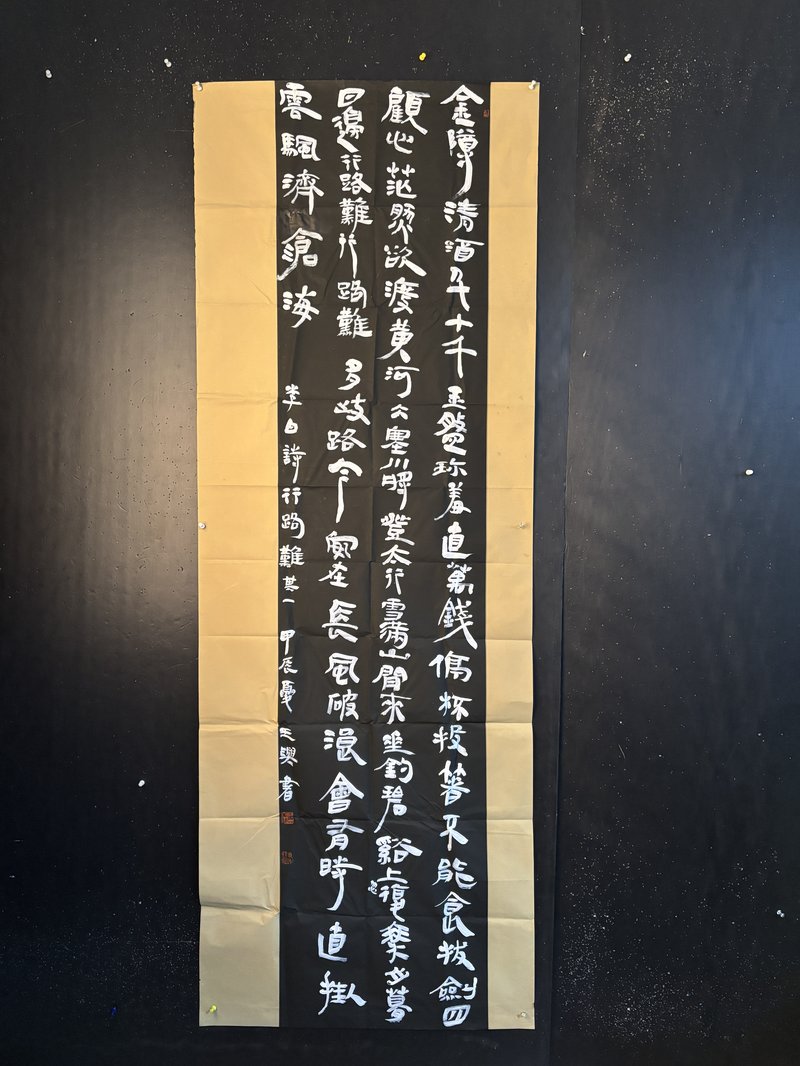 金樽清酒斗十千玉盤珍羞直萬錢停杯投箸不能食拔劍四
顧心茫然欲渡黃河冰塞川將登太行雪滿山閒來坐釣碧谿上忽復乘舟夢
日邊行路難行路難多歧路今安在長風破浪會有時直掛
雲颿濟滄海
李白詩行路難其一甲辰夏王興書